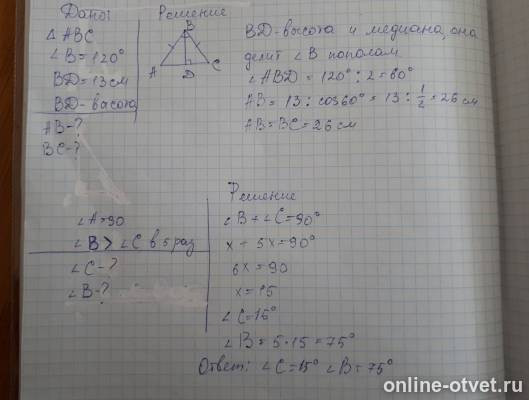 Дано:
Решение
△ABC
∠B = 120°
BD = 13 см
BD - высота
AB - ?
BC - ?
B
A
D
C
BD - высота и медиана, она
делит ∠B пополам
∠ABD = 120° : 2 = 60°
AB = 13 : cos60° = 13 : 1/2 = 26 см
AB = BC = 26 см
∠A = 90
∠B > ∠C в 5 раз
∠C - ?
∠B - ?
Решение
∠B + ∠C = 90°
x + 5x = 90°
6x = 90
x = 15
∠C = 15°
∠B = 5·15 = 75°
Ответ: ∠C = 15° ∠B = 75°
online-otvet.ru